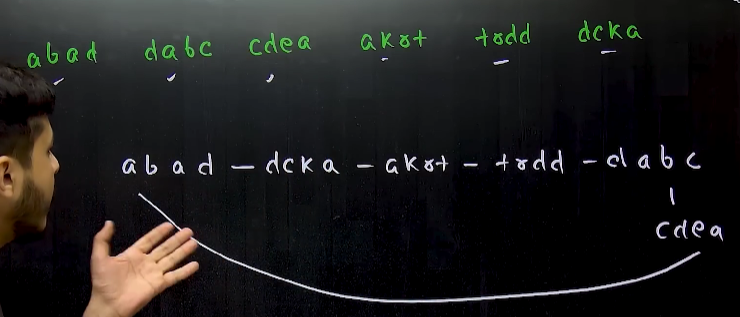 abad dabc cdea akrt trdd dcka
abad - dcka - akrt - trdd - dabc
cdea